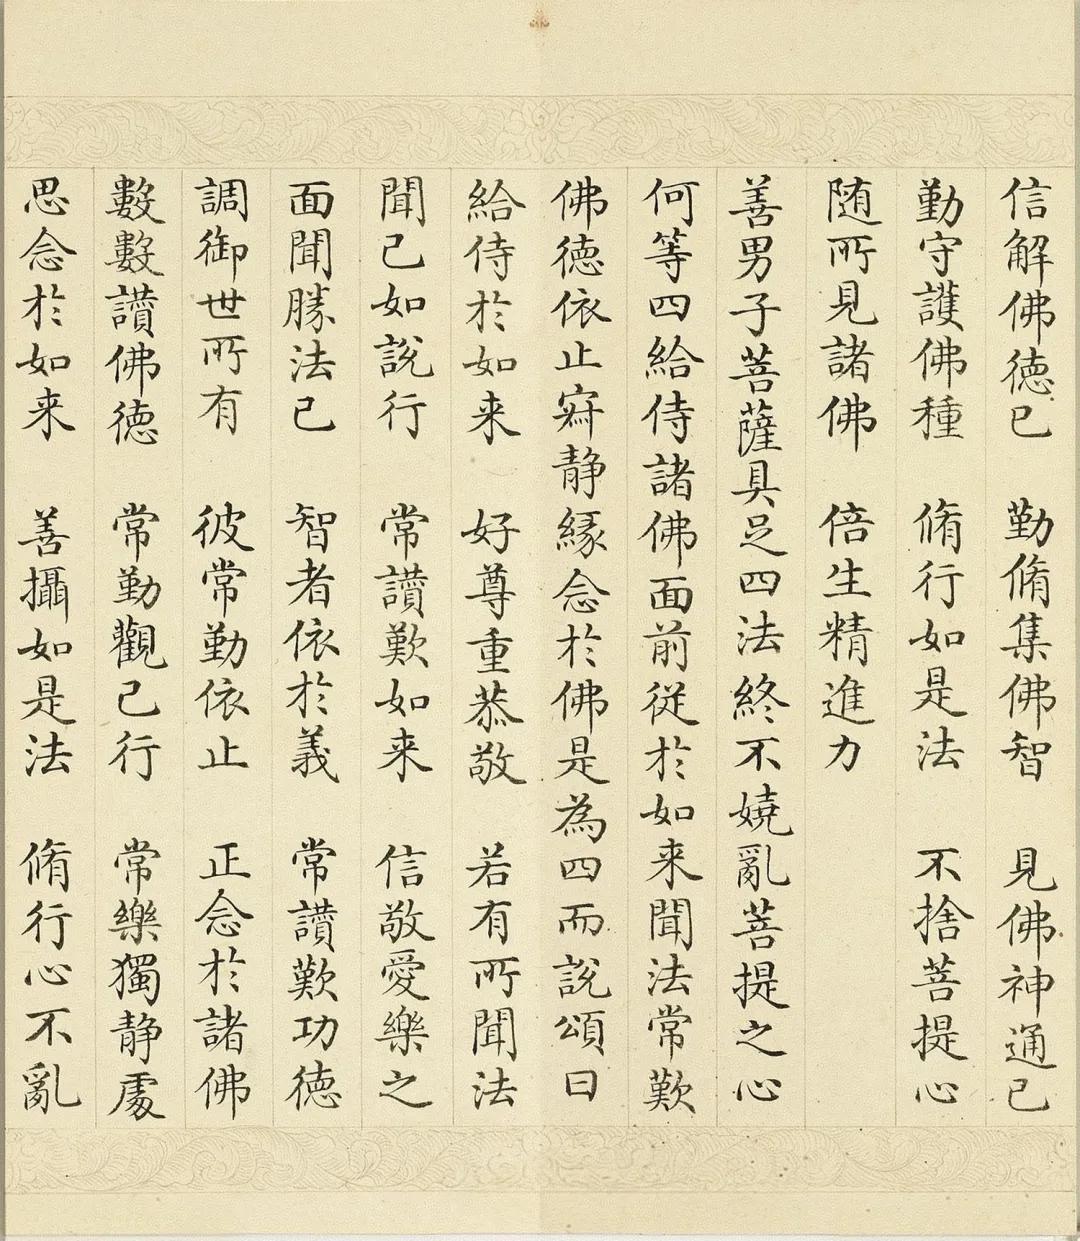 信解佛德已　勤脩集佛智　見佛神通已
勤守護佛種　脩行如是法　不捨菩提心
随所見諸佛　倍生精進力
善男子菩薩具足四法終不嬈亂菩提之心
何等四給侍諸佛面前従於如来聞法常歎
佛德依止寂静緣念於佛是為四而說頌曰
給侍於如来　好尊重恭敬　若有所聞法
聞已如說行　常讚歎如来　信敬愛樂之
面聞勝法已　智者依於義　常讚歎功德
調御世所有　彼常勤依止　正念於諸佛
數數讚佛德　常勤觀已行　常樂獨静處
思念於如来　善攝如是法　脩行心不亂